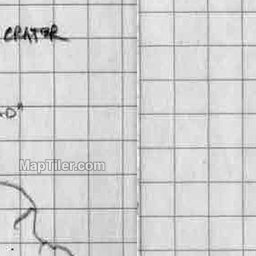 CRATER
D"
MapTiler.com